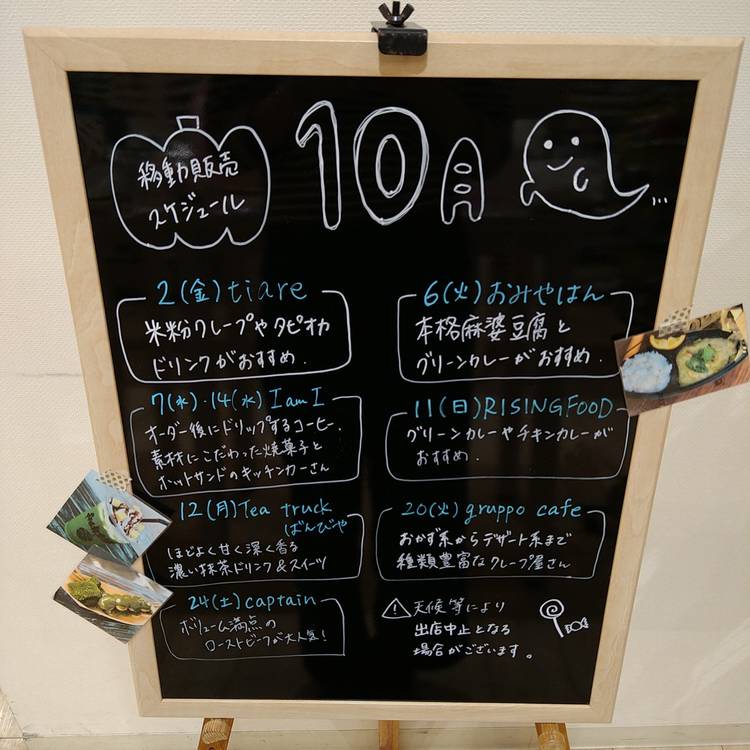 移動販売
スケジュール
10月
2(金)tiare
米粉クレープやタピオカ
ドリンクがおすすめ.
6(火)おみやはん
本格麻婆豆腐と
グリーンカレーがおすすめ.
7(水)・14(水) I am I
オーダー後にドリップするコーヒー.
素材にこだわった焼菓子と
ホットサンドのキッチンカーさん
11(日)RISINGFOOD
グリーンカレーやチキンカレーが
おすすめ.
12(月)Tea truck
ばんびや
ほどよく甘く深く香る
濃い抹茶ドリンク&スイーツ
20(火)gruppo cafe
おかず系からデザート系まで
種類豊富なクレープ屋さん
24(土)captain
ボリューム満点の
ローストビーフが大人気!
天候等により
出店中止となる
場合がございます。